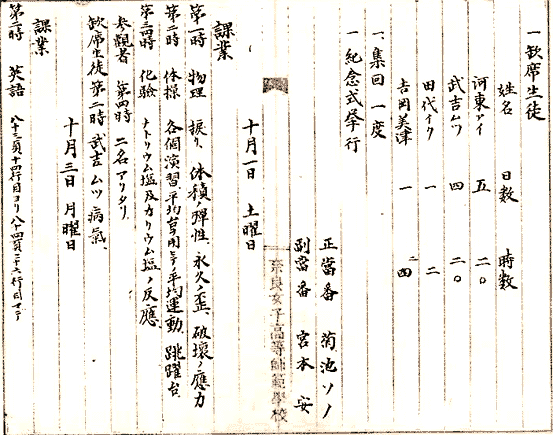 一 欠席生徒
姓名 日数 時数
河東アイ 五 二〇
武吉ムツ 四 二〇
田代イク 一 二
吉岡美津 一 四
一、集回 一度
一 紀念式挙行
正當番 菊池ソノ
副當番 宮本安
奈良女子高等師範學校
十月一日 土曜日
課業
第一時 物理 捩り、体積ノ彈性、永久ノ歪、破壊ノ應力
第二時 体操 各個演習、平均臺用ヰ平均運動、跳躍台
第三四時 化驗 ナトリウム塩及カリウム塩ノ反應、
参觀者 第四時 二名アリタリ、
欠席生徒 第二時 武吉ムツ 病氣、
十月三日 月曜日
課業
第一時 英語 八十二頁十四行目ヨリ八十四頁二十六行目マデ